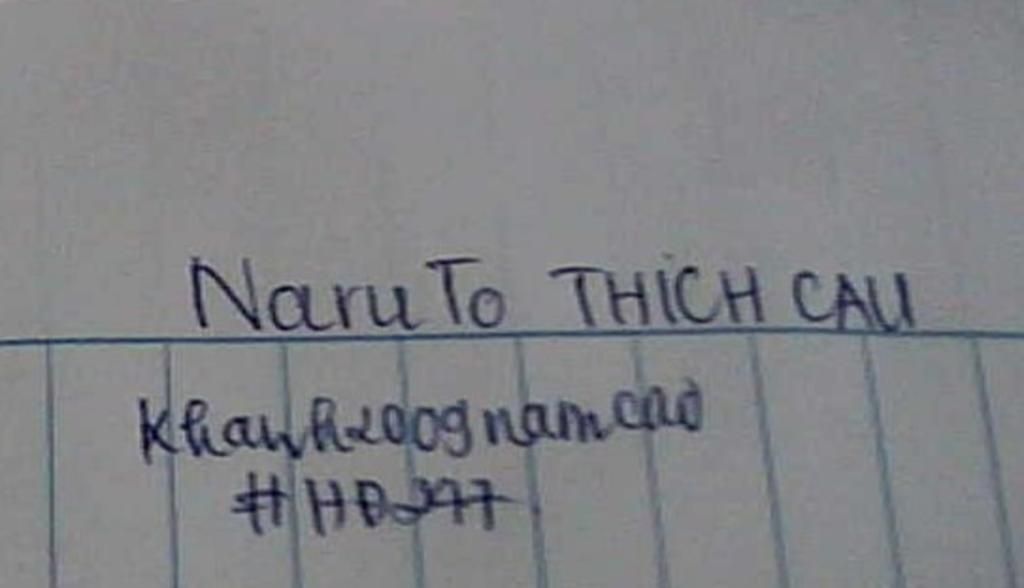 NaruTo THiCH CAU
Khanh2009namcao